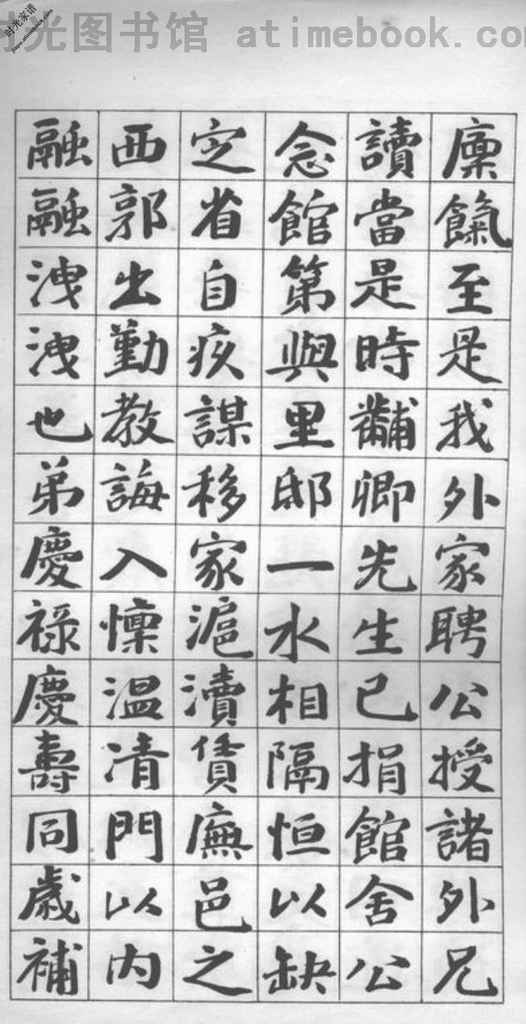 时光图书馆 atimebook.com
廩餼至是我外家聘公授諸外兄
讀當是時黼卿先生已捐館舍公
念館第與里邸一水相隔恒以缺
定省自疚謀移家滬瀆賃廡邑之
西郭出勤教誨入懍温凊門以内
融融洩洩也弟慶祿慶壽同歲補